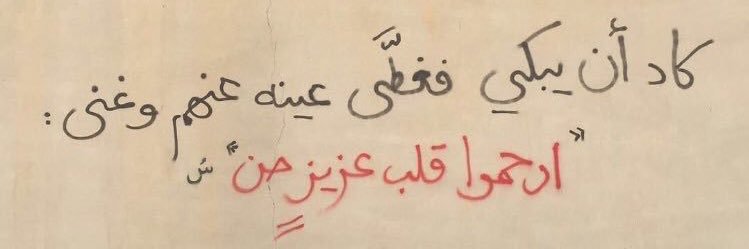 كاد أن يبكي فغطَّى عينه عنهم وغنى :
"ارحموا قلب عزيزٍ حن" سّ